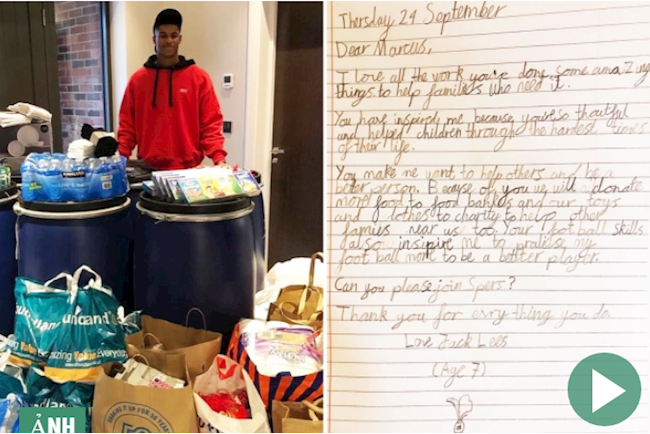 Thersday 24 September
Dear Marcus,
I love all the work you're dong, some amaZing
things to help families who need it.
You have inspired me, because you're so thoutful
and helped children through the hardest times
of their life.
You make me want to help others and be a
beter person. Because of you we will donate
more food to food banks and our toys
and clothes to charity to help other
familys near us too. Your foot ball skills
also inspire me to
foot ball more to be a better player.
Can you please join Spers?
Thank you for evry thing you do.
Love Jack Lees
(Age 7)
KIRKLAND
ẢNH